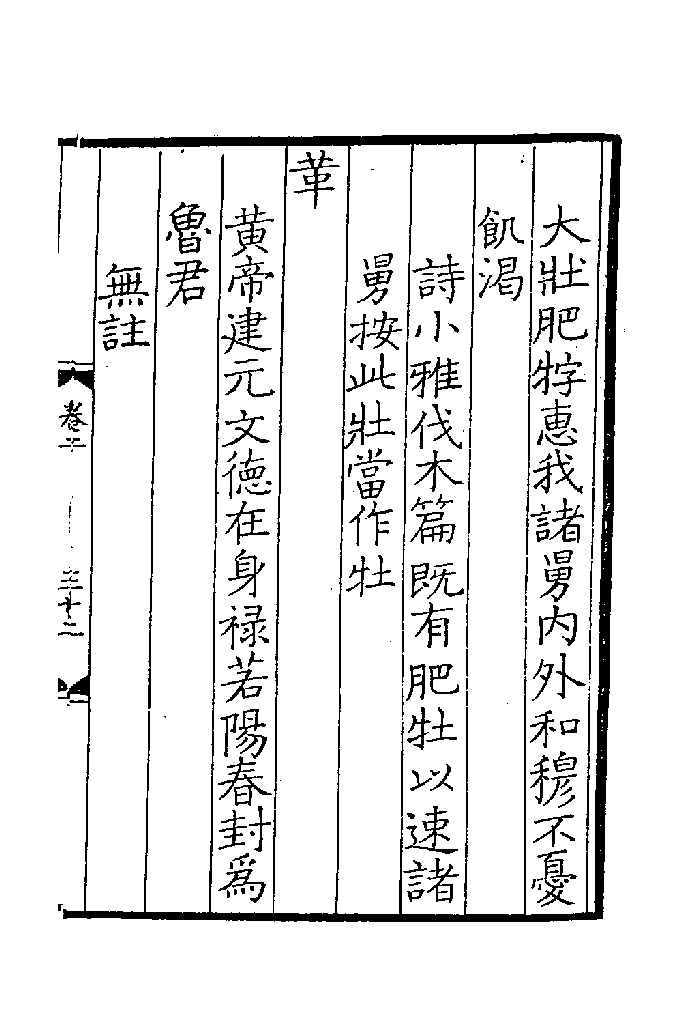 大壯肥牸惠我諸舅内外和穆不憂
飢渴
詩小雅伐木篇既有肥牡以速諸
舅按此壯當作牡
革
黄帝建元文徳在身禄若陽春封為
魯君
無註